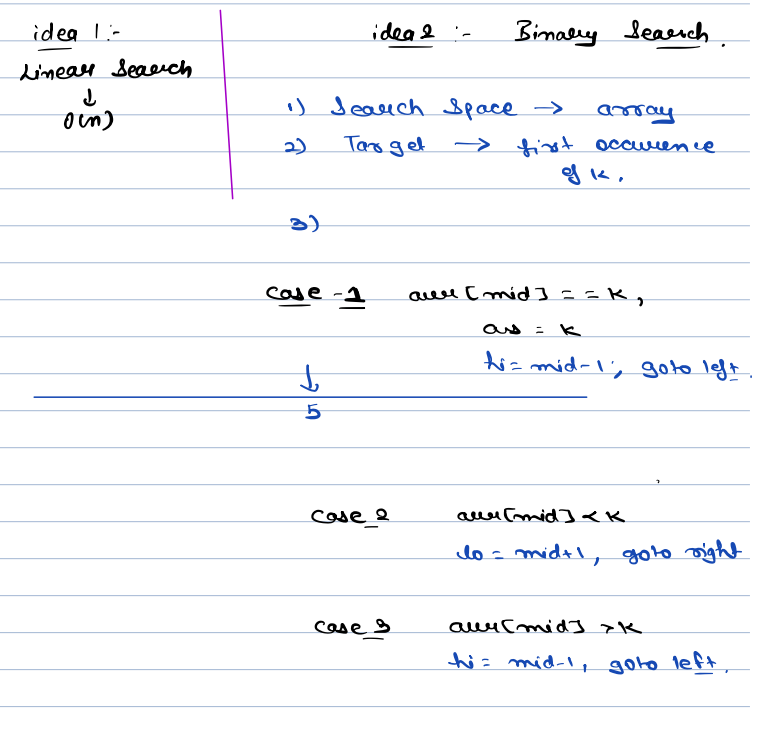 idea 1:-
Linear Search
↓
O(n)
idea 2 :- Binary Search.
1) Search Space → array
2) Target → first occurence
of K.
3)
case - 1 arr[mid] == K,
ans = K
hi = mid-1, goto left.
↓
5
case 2 arr[mid] < K
lo = mid+1, goto right
case 3 arr[mid] > K
hi = mid-1, goto left.